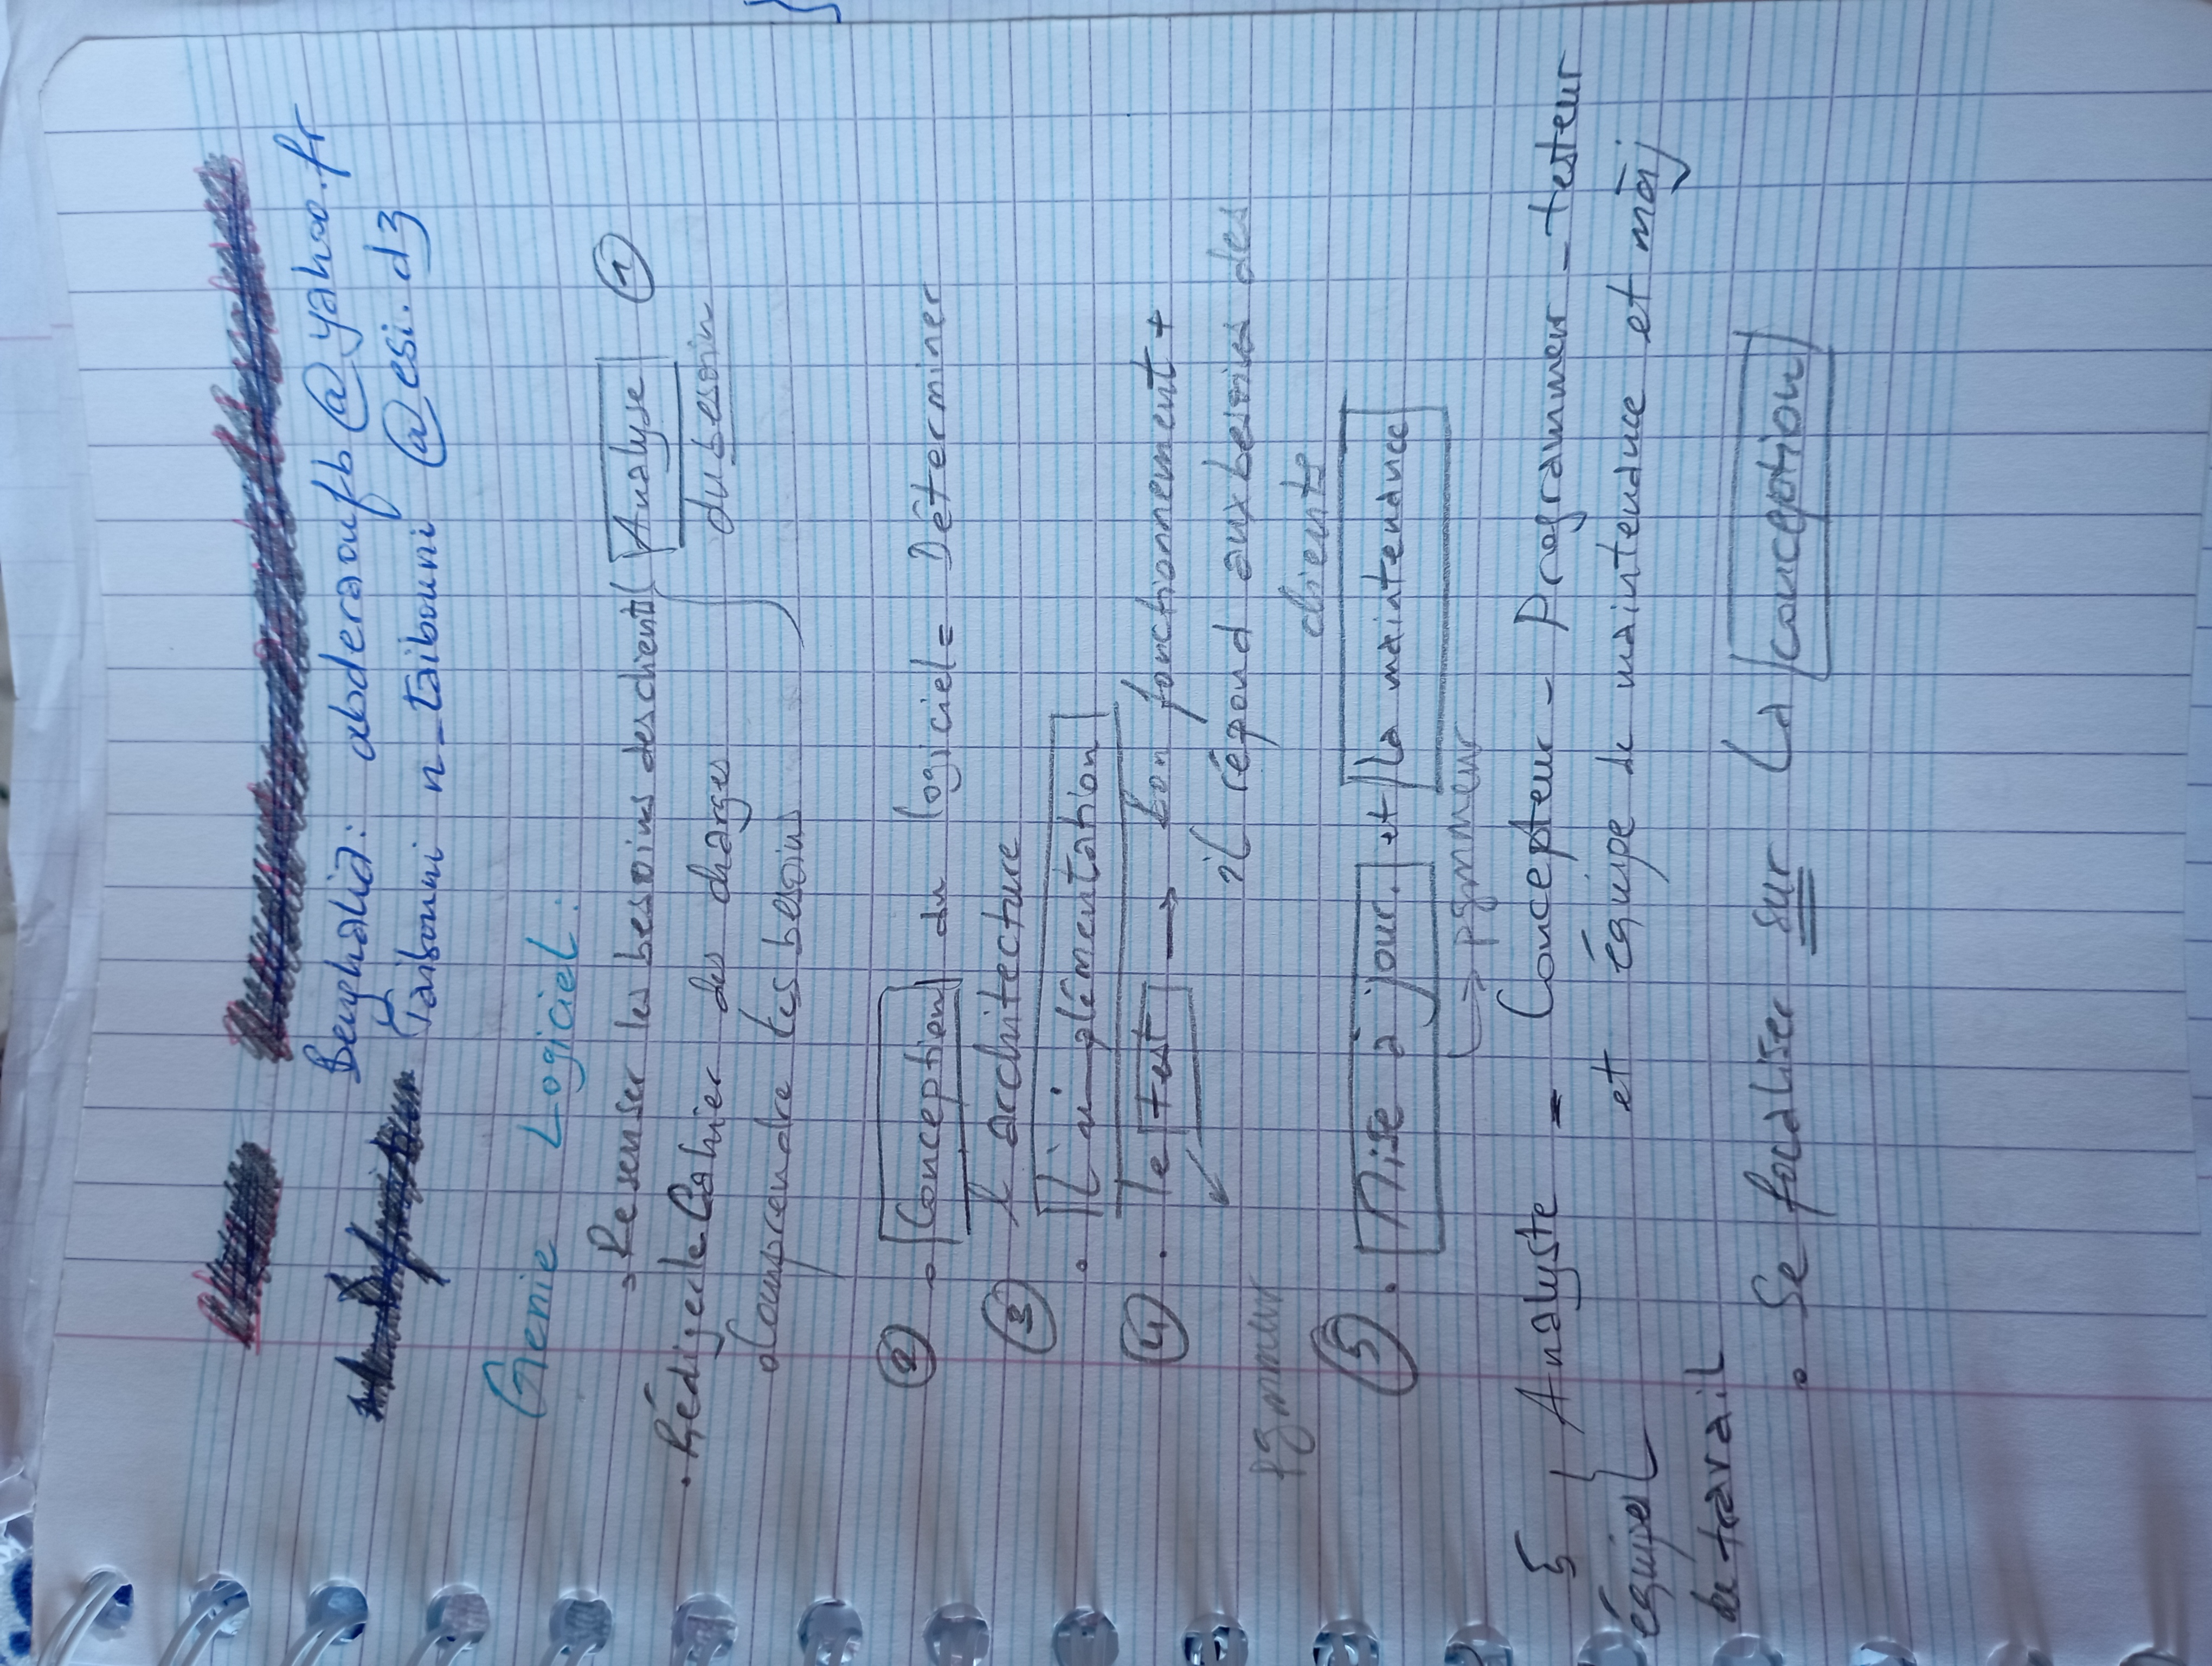 Benghalia: abderaoufb@yahoo.fr
Taibouni n_taibouni @esi.dz
Genie Logiciel:
. Resenser les besoins des clients Analyse ①
. Rédiger le Cahier des charges du besoin
. Comprendre les besoins
② . Conception du logiciel = Déterminer
l'architecture
③
. L'implémentation
④ . le test → bon fonctionnement +
il répond aux besoins des
clients
pgmmeur
⑤ . Mise à jour. et la maintenance
↳ pgmmeur
5 Analyste - Concepteur - Programmeur - testeur
équipes et équipe de maintenance et màj
de travail
. Se focaliser sur la conception